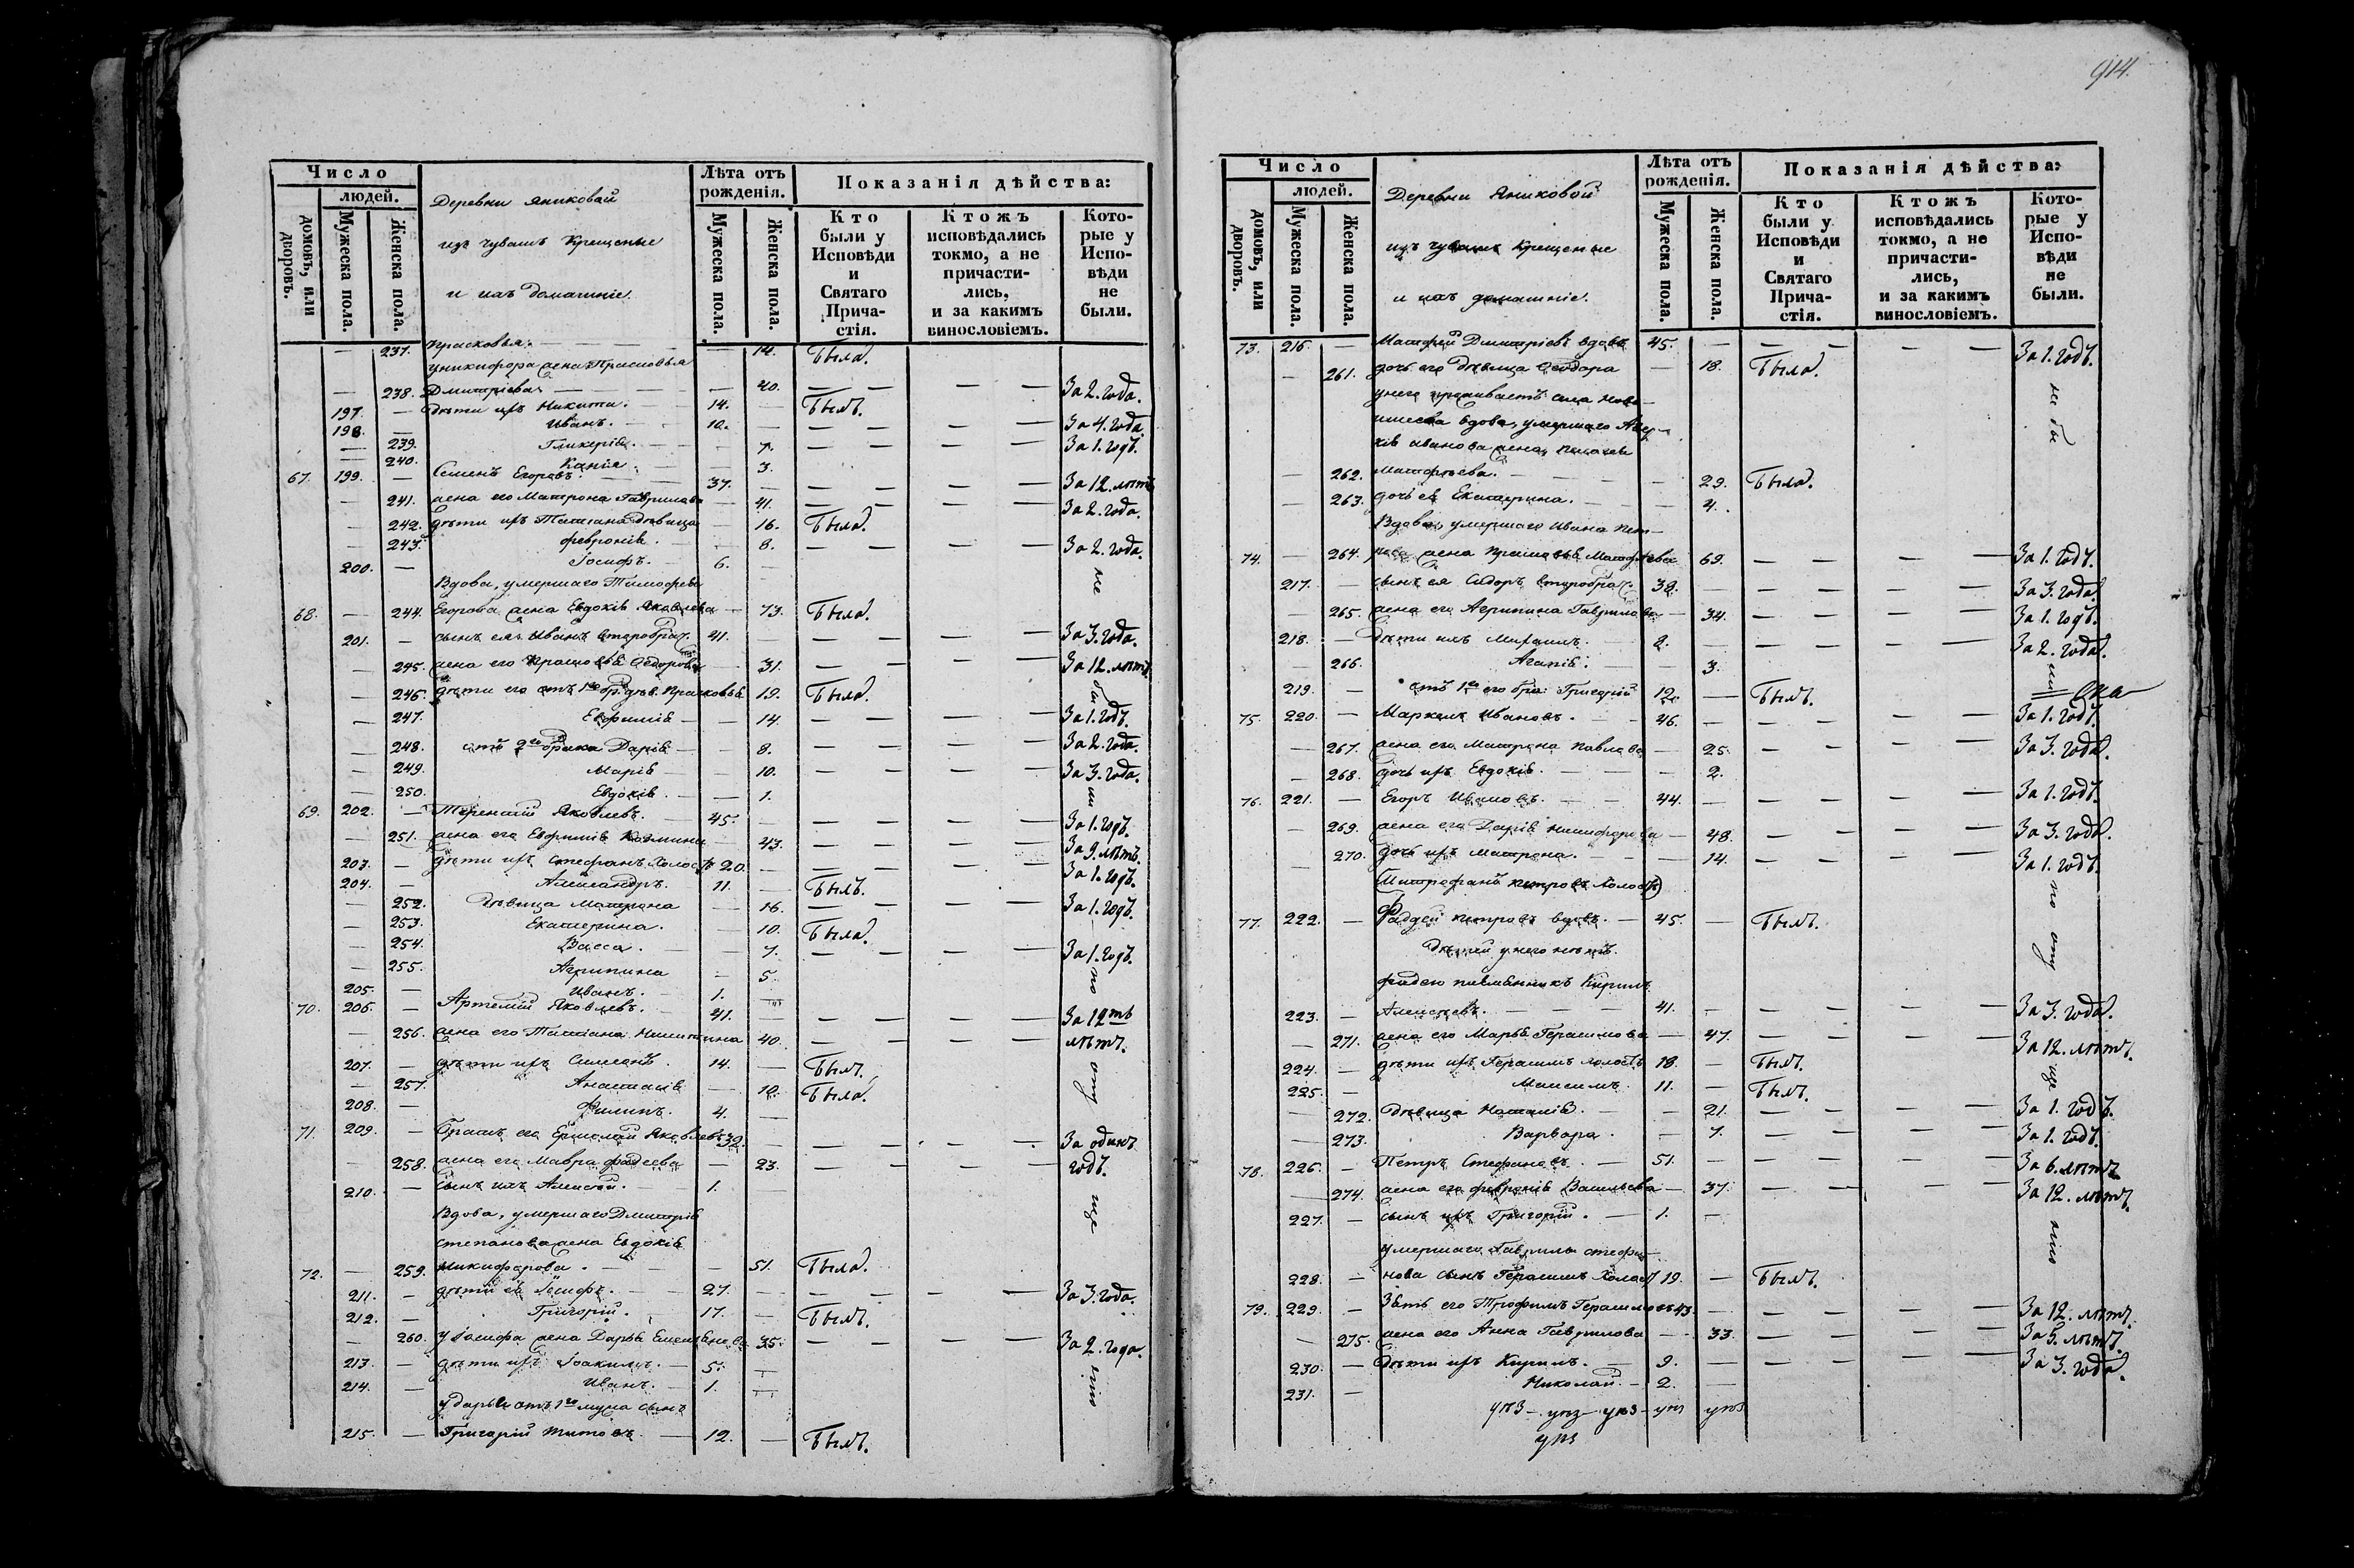 914.
Число
людей.
домовъ, или дворовъ.
Мужеска пола.
Женска пола.
Деревни Яниковой
изъ чувашъ Крещеные
и ихъ домашніе.
Лѣта отъ рожденія.
Мужеска пола.
Женска пола.
Показанія дѣйства:
Кто были у Исповѣди и Святаго Прича-стія.
Ктожъ исповѣдались токмо, а не причасти-лись, и за какимъ винословіемъ.
Кото-рые у Испо-вѣди не были.
— 237. Прасковья. — 14. Была.
у Никифора жена Прасковья
— 238. Дмитріева — 40. — — — — За 2. года.
197. — дѣти ихъ Никита. 14. — Былъ.
198. — Иванъ. 10. — — — — За 4. года
— 239. Гликерія. — 7. — — — — За 1. годъ.
— 240. — 3.
67. 199. — Семенъ Егоровъ. 37. — — — — За 12. лѣтъ
— 241. жена его Матрона Гаврилова — 41. — — — — За 2. года.
— 242. дѣти ихъ Татіана дѣвица — 16. Была.
— 243. Февронія. — 8. — — — — За 2. года.
200. — Іосифъ. 6. —
Вдова, умершаго Тимофея
68. — 244. Егорова жена Евдокія Яковлева — 73. Была.
201. — сынъ ея Иванъ второбрач. 41. — — — — За 3. года.
— 245. жена его Прасковья Федорова — 31. — — — — За 12. лѣтъ
— 246. дѣти его отъ 1го бр. дѣв. Прасковья 19. Была.
— 247. Евфимія — 14. — — — — За 1. годъ.
— 248. отъ 2го брака Дарія — 8. — — — — За 2. года.
— 249. Марія — 10. — — — — За 3. года.
— 250. Евдокія. — 1.
69. 202. — Терентій Яковлевъ. 45. — — — — За 1. годъ.
— 251. жена его Евфимія Козмина — 43. — — — — За 9. лѣтъ.
203. — дѣти ихъ Стефанъ холостъ 20. — — — — За 1. годъ.
204. — Александръ. 11. — Былъ.
— 252. дѣвица Матрона — 16. — — — — За 1. годъ.
— 253. Екатерина. — 10. Была.
— 254. Васса. — 7. — — — — За 1. годъ.
— 255. Агрипина — 5.
205. — Иванъ. 1. —
70. 206. — Артемій Яковлевъ. 41. — — — — За 12ть
— 256. жена его Татіана Никитина 40. — — — — лѣтъ.
207. — дѣти ихъ Симеонъ. 14. — Былъ.
— 257. Анастасія — 10. Была.
208. — Филипъ. 4. —
71. 209. — Братъ его Ермолай Яковлевъ 32. — — — — За одинъ
— 258. жена его Мавра Фадеева — 23. — — — — годъ.
210. — сынъ ихъ Алексей. 1. —
Вдова, умершаго Дмитрія
степанова жена Евдокія
72. — 259. Никифорова. — 51. Была.
211. — дѣти ея Іосифъ. 27. — — — — За 3. года.
212. — Григорій. 17. — Былъ.
— 260. у Іосифа жена Дарья Емельянова 35. — — — — За 2. года.
213. — дѣти ихъ Іоакимъ. 5. —
214. — Иванъ. 1. —
у дарьи отъ 1го мужа сынъ
215. — Григорій Титовъ. 12. — Былъ.
не
бы
ли
по
опу
ще
нію
Число
людей.
домовъ, или дворовъ.
Мужеска пола.
Женска пола.
Деревни Яниковой
изъ чувашъ Крещеные
и ихъ домашніе.
Лѣта отъ рожденія.
Мужеска пола.
Женска пола.
Показанія дѣйства:
Кто были у Исповѣди и Святаго Прича-стія.
Ктожъ исповѣдались токмо, а не причасти-лись, и за какимъ винословіемъ.
Кото-рые у Испо-вѣди не были.
73. 216. — Матфей Дмитріевъ вдовъ 45. — — — — За 1. годъ.
— 261. дочь его дѣвица Феодора — 18. Была.
у него проживаетъ села
вдова, умершаго
Иванова жена
— 262. Матфеева. — 29. Была.
— 263. дочь ея Екатерина. — 4.
Вдова, умершаго Ивана Пет-
74. — 264. рова жена Прасковья Матфеева 69. — — — — За 1. годъ.
217. — сынъ ея Сидоръ второбрач. 38. — — — — За 3. года.
— 265. жена его Агрипина Гаврилова — 34. — — — — За 1. годъ.
218. — дѣти ихъ Михаилъ. 8. — — — — За 2. года.
— 266. Агапія. — 3.
219. — отъ 1го его бра: Григорій 12. — Былъ.
75. 220. — Маркелъ Ивановъ. 46. — — — — За 1. годъ.
— 267. жена его Матрона Павлова — 25. — — — — За 3. года.
— 268. дочь ихъ Евдокія. — 2.
76. 221. — Егоръ Ивановъ. 44. — — — — За 1. годъ.
— 269. жена его Дарія Никифорова — 48. — — — — За 3. года.
— 270. дочь ихъ Матрона. — 14. — — — — За 1. годъ.
(Митрофанъ Петровъ холостъ)
77. 222. — Фаддей Петровъ вдовъ. 45. — Былъ.
Дѣтей у него нѣтъ.
Фадею племянникъ Кирилъ
223. — Алексѣевъ. 41. — — — — За 3. года.
— 271. жена его Марья Герасимова — 47. — — — — За 12. лѣтъ.
224. — дѣти ихъ Герасимъ холостъ 18. — Былъ.
225. — Максимъ. 11. — Былъ.
— 272. дѣвица Наталія. — 21. — — — — За 1. годъ.
— 273. Варвара. — 7. — — — — За 1. годъ.
78. 226. — Петръ Стефановъ. 51. — — — — За 6. лѣтъ
— 274. жена его Февронія Васильева — 37. — — — — За 12. лѣтъ.
227. — сынъ ихъ Григорій. 1. —
умершаго Гаврилы стефа-
228. — нова сынъ Герасимъ холост 19. — Былъ.
79. 229. — Зять его Трофимъ Герасимовъ 43. — — — — За 12. лѣтъ.
— 275. жена его Анна Гаврилова — 33. — — — — За 5. лѣтъ.
230. — дѣти ихъ Кирилъ. 9. — — — — За 3. года.
231. — Николай. 2. —
не бы
ли
по
опу
ще
нію